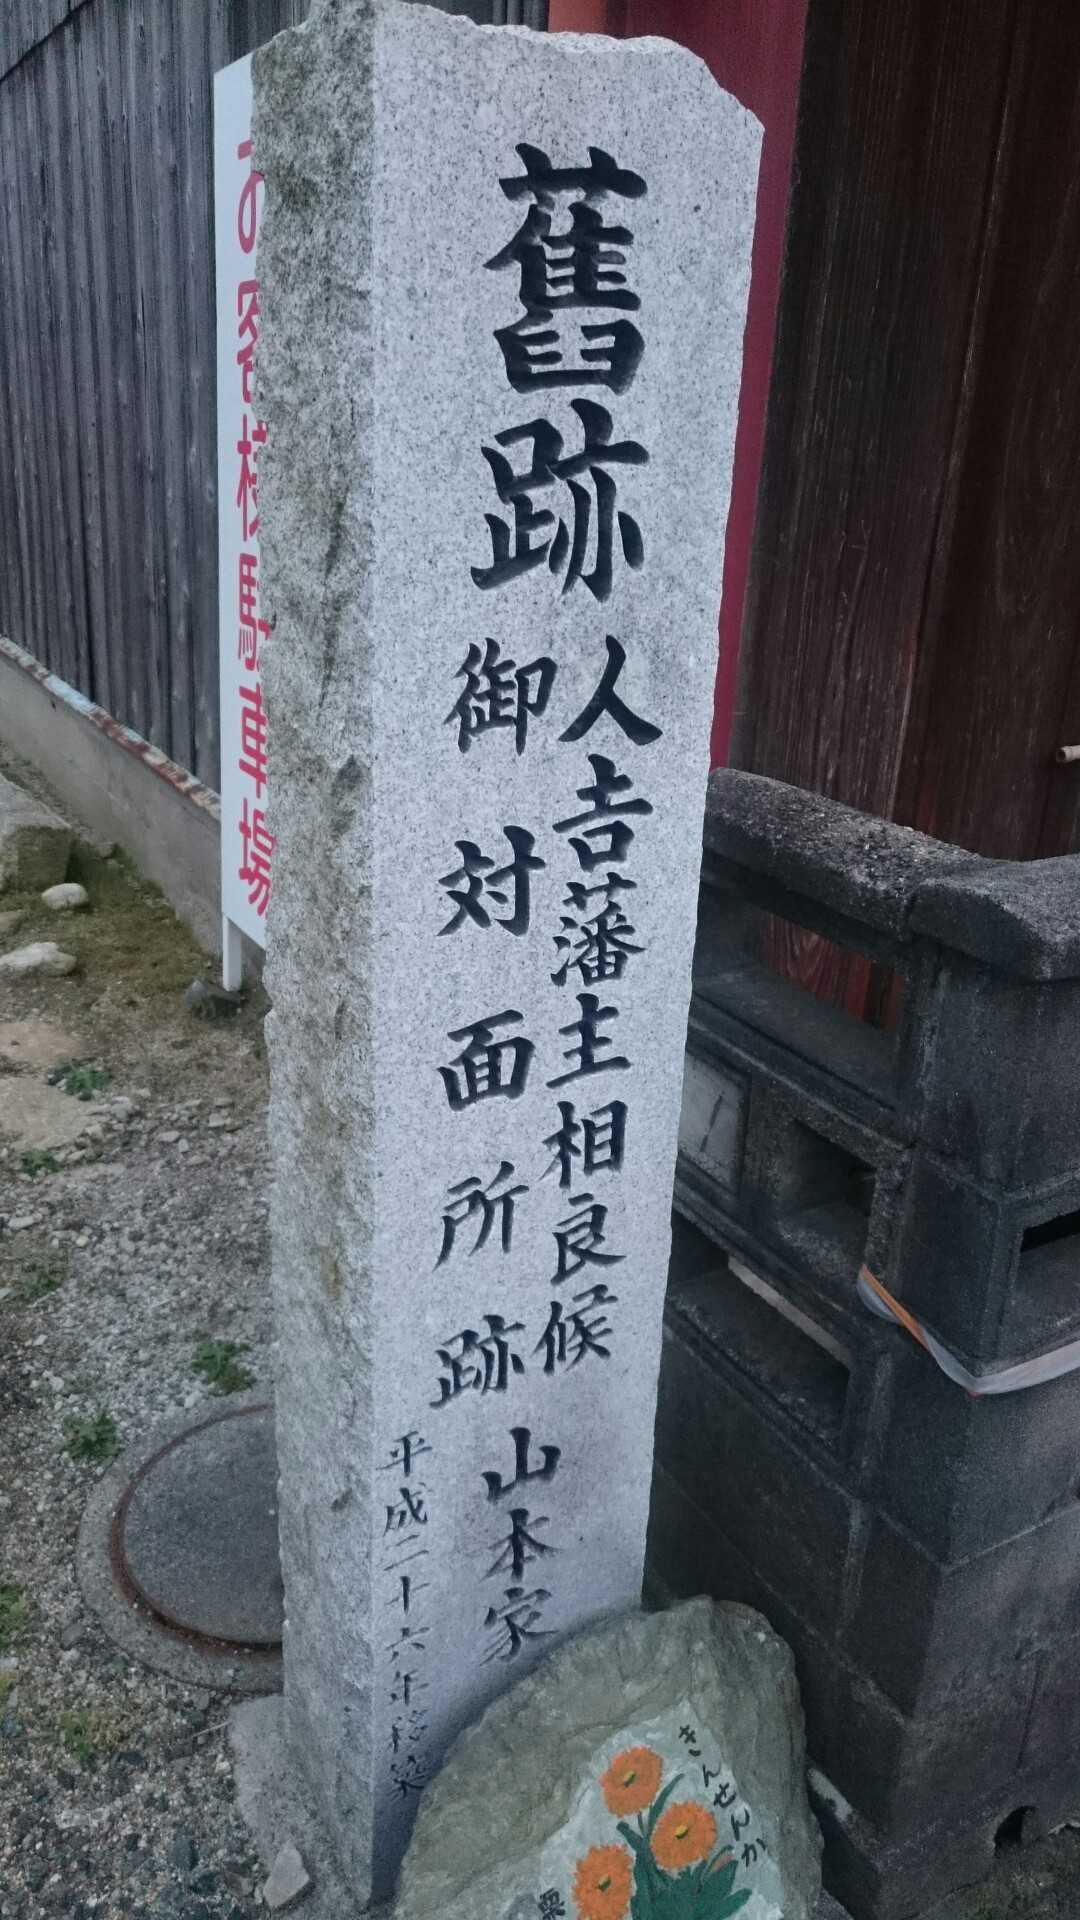 舊跡
人吉藩主相良候
御対面所跡
山本家
平成二十六年移築
お客様駐車場
きんせんか
栗